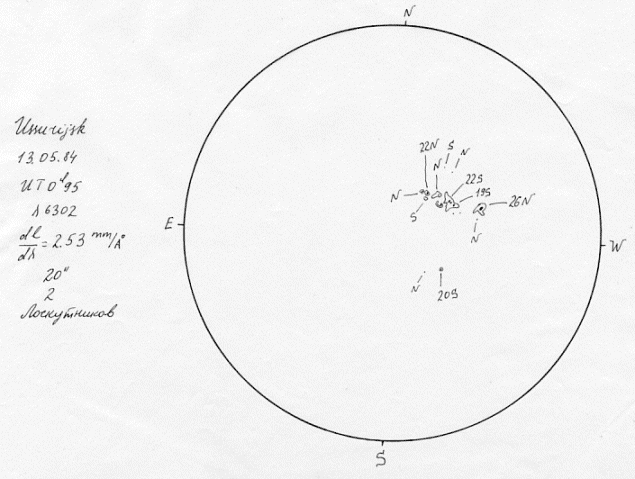 N
Ussurijsk
13.05.84
UT 0ᵈ95
λ 6302
dl/dλ = 2.53 mm/Å
20"
2
Лоскутников
22N S
N N
22S
N 19S
S 26N
N
E W
N
20S
S